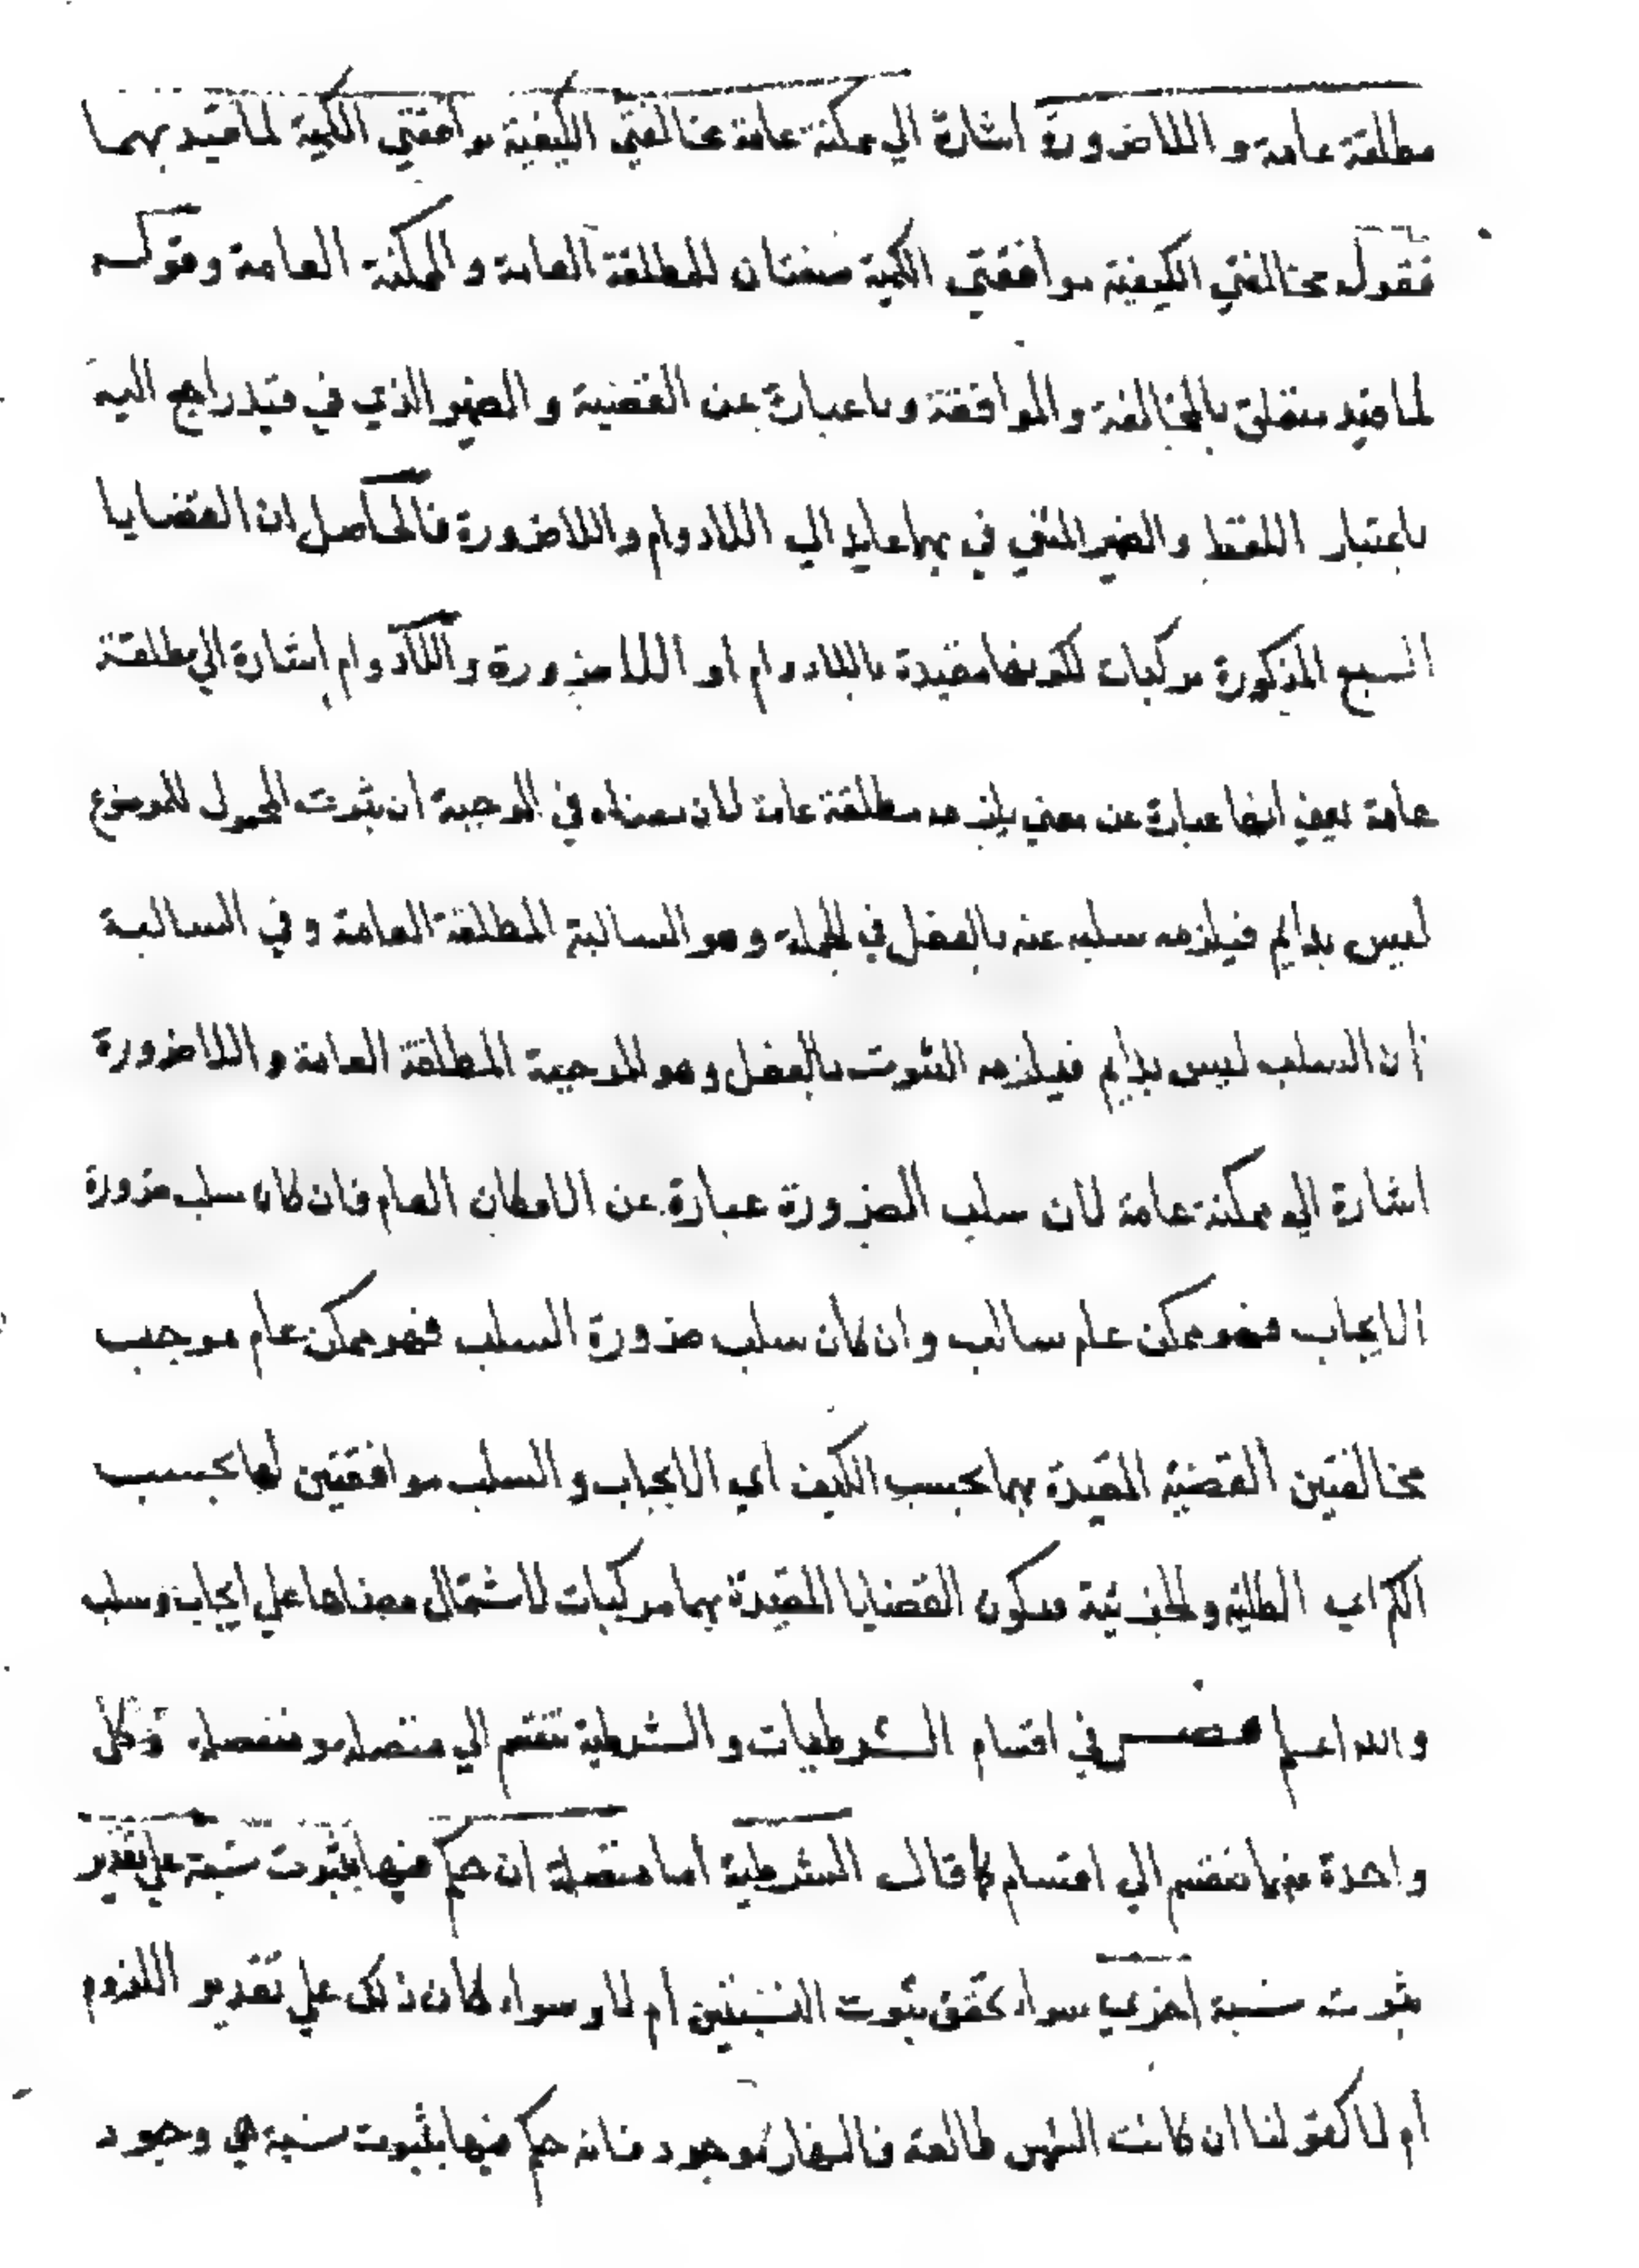 مطلقة عامة و اللاضرورة اشارة الي ممكنة عامة مخالفتي الكيفية موافقتي الكمية لما قيد بهما
فقول مخالفتي الكيفية موافقتي الكمية صفتان للمطلقة العامة و الممكنة العامة وقوله
لما قيد متعلق بالمخالفة والموافقة وما عبارة عن القضية و الضمير الذي في قيد راجع اليه
باعتبار اللفظ والضمير المثني في بهما عايد الي اللادوام واللاضرورة فالحاصل ان القضايا
السبع المذكورة مركبات لكونها مقيدة باللادوام او اللاضرورة واللادوام اشارة الي مطلقة
عامة يعني انها عبارة عن معني يلزمه مطلقة عامة لان معناه في الموجبة ان ثبوت المحمول للموضوع
ليس بدايم فيلزمه سلبه عنه بالفعل في الجملة وهو السالبة المطلقة العامة و في السالبة
ان السلب ليس بدايم فيلزمه الثبوت بالفعل وهو الموجبة المطلقة العامة و اللاضرورة
اشارة الي ممكنة عامة لان سلب الضرورة عبارة عن الامكان العام فان كان سلب ضرورة
الايجاب فهو ممكن عام سالب وان كان سلب ضرورة السلب فهو ممكن عام موجب
مخالفتين القضية المقيدة بهما بحسب الكيف اي الايجاب و السلب موافقتين لها بحسب
الكم اي الكلية والجزئية فيكون القضايا المقيدة بهما مركبات لاشتمال معناها علي ايجاب وسلب
والله اعلم فصل في اقسام الشرطيات و الشرطية تنقسم الي متصلة و منفصلة وكل
واحدة منهما تنقسم الي اقسام كما قال الشرطية اما متصلة ان حكم فيها بثبوت نسبة علي تقدير
ثبوت نسبة اخري سواء تحقق ثبوت النسبتين ام لا وسواء كان ذلك علي تقدير اللزوم
ام لا كقولنا ان كانت الشمس طالعة فالنهار موجود فانه حكم فيها بثبوت نسبة هي وجود